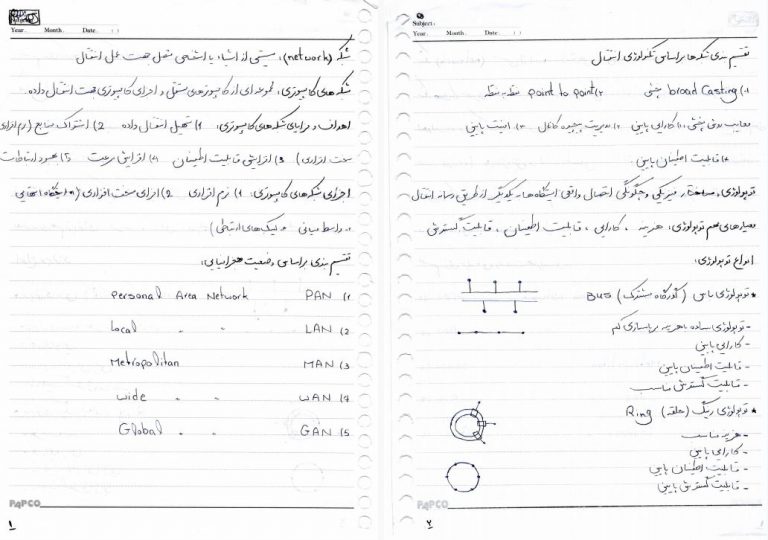 Year. Month. Date. ( )
شبکه (network): سیستمی از اشیاء یا اشخاص متصل جهت عمل انتقال
شبکه های کامپیوتری: مجموعه ای از کامپیوترهای مستقل و اجزای کامپیوتری جهت انتقال داده.
اهداف و مزایای شبکه های کامپیوتری: 1) تسهیل انتقال داده 2) اشتراک منابع (نرم افزاری
سخت افزاری) 3) افزایش قابلیت اطمینان 4) افزایش سرعت 5) بهبود ارتباطات
اجزای شبکه های کامپیوتری: 1) نرم افزاری 2) اجزای سخت افزاری (ایستگاه انتهایی
- رابط میانی - لینک های ارتباطی)
تقسیم بندی براساس وضعیت جغرافیایی:
1) PAN Personal Area Network
2) LAN Local " "
3) MAN Metropolitan
4) WAN wide " "
5) GAN Global " "
PAPCO
۱
Subject:
Year. Month. Date. ( )
تقسیم بندی شبکه ها براساس تکنولوژی انتقال
1) broad Casting پخشی 2) point to point نقطه به نقطه
معایب روش پخشی: 1) کارایی پایین 2) مدیریت پیچیده کانال 3) امنیت پایین
4) قابلیت اطمینان پایین.
توپولوژی: ساختار فیزیکی و چگونگی اتصال واقعی ایستگاه ها به یکدیگر از طریق رسانه انتقال
معیارهای مهم توپولوژی: هزینه ، کارایی ، قابلیت اطمینان ، قابلیت گسترش
انواع توپولوژی:
* توپولوژی باس (گذرگاه مشترک) Bus
- توپولوژی ساده با هزینه پیاده سازی کم
- کارایی پایین
- قابلیت اطمینان پایین
- قابلیت گسترش مناسب
* توپولوژی رینگ (حلقه) Ring
- هزینه مناسب
- کارایی پایین
- قابلیت اطمینان پایین
- قابلیت گسترش پایین
PAPCO
۲